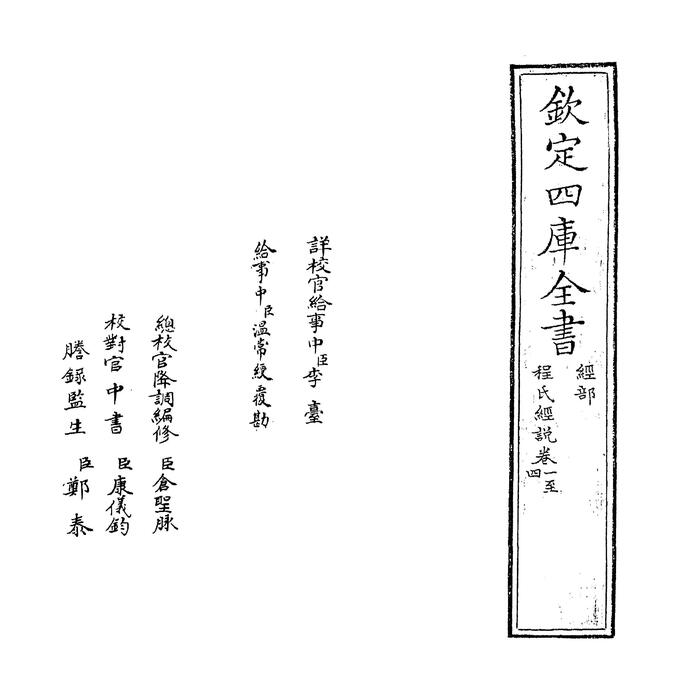 欽定四庫全書
經部
程氏經説卷一至四
詳校官給事中臣李臺
給事中臣温常綬覆勘
總校官降調編修臣倉聖脉
校對官中書臣康儀鈞
謄錄監生臣鄭泰